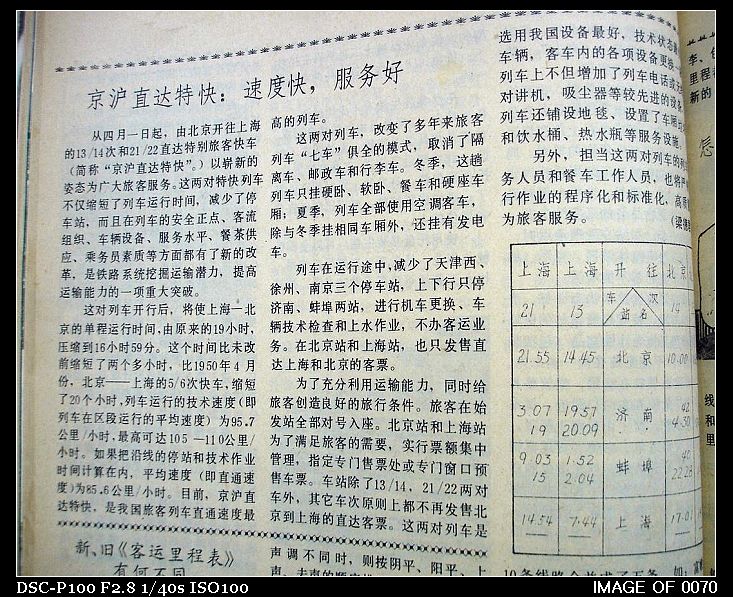 京沪直达特快：速度快，服务好
从四月一日起，由北京开往上海
的13/14次和21/22直达特别旅客快车
（简称“京沪直达特快”。）以崭新的
姿态为广大旅客服务。这两对特快列车
不仅缩短了列车运行时间，减少了停
车站，而且在列车的安全正点、客流
组织、车辆设备、服务水平、餐茶供
应、乘务员素质等方面都有了新的改
革，是铁路系统挖掘运输潜力，提高
运输能力的一项重大突破。
这对列车开行后，将使上海—北
京的单程运行时间，由原来的19小时，
压缩到16小时59分。这个时间比未改
前缩短了两个多小时，比1950年4月
份，北京——上海的5/6次快车，缩短
了20个小时，列车运行的技术速度（即
列车在区段运行的平均速度）为95.7
公里/小时，最高可达105—110公里/
小时。如果把沿线的停站和技术作业
时间计算在内，平均速度（即直通速
度）为85.6公里/小时。目前，京沪直
达特快，是我国旅客列车直通速度最
高的列车。
这两对列车，改变了多年来旅客
列车“七车”俱全的模式，取消了隔
离车、邮政车和行李车。冬季，这趟
列车只挂硬卧、软卧、餐车和硬座车
厢；夏季，列车全部使用空调客车，
除与冬季挂相同车厢外，还挂有发电
车。
列车在运行途中，减少了天津西、
徐州、南京三个停车站，上下行只停
济南、蚌埠两站，进行机车更换、车
辆技术检查和上水作业，不办客运业
务。在北京站和上海站，也只发售直
达上海和北京的客票。
为了充分利用运输能力，同时给
旅客创造良好的旅行条件。旅客在始
发站全部对号入座。北京站和上海站
为了满足旅客的需要，实行票额集中
管理，指定专门售票处或专门窗口预
售车票。车站除了13/14，21/22两对
车外，其它车次原则上都不再发售北
京到上海的直达客票。这两对列车是
选用我国设备最好，技术状态
车辆，客车内的各项设备更换
列车上不但增加了列车电话
对讲机，吸尘器等较先进的设备
列车还铺设地毯、设置了车厢
和饮水桶、热水瓶等服务设施。
另外，担当这两对列车的列
务人员和餐车工作人员，也将
行作业的程序化和标准化，高
为旅客服务。
上海 上海 开往 北京
21 13 车次 站名 14
21.55 14.45 北京 10.00
3.07 19.57 济南 42
19 20.09 4.30
9.03 1.52 蚌埠 40
15 2.04 22.28
14.54 7.44 上海 17.01
新、旧《客运里程表》
有何不同
声调不同时，则按阴平、阳平、上
李、
里程
新的
怎
线
和
里
DSC-P100 F2.8 1/40s ISO100
IMAGE OF 0070